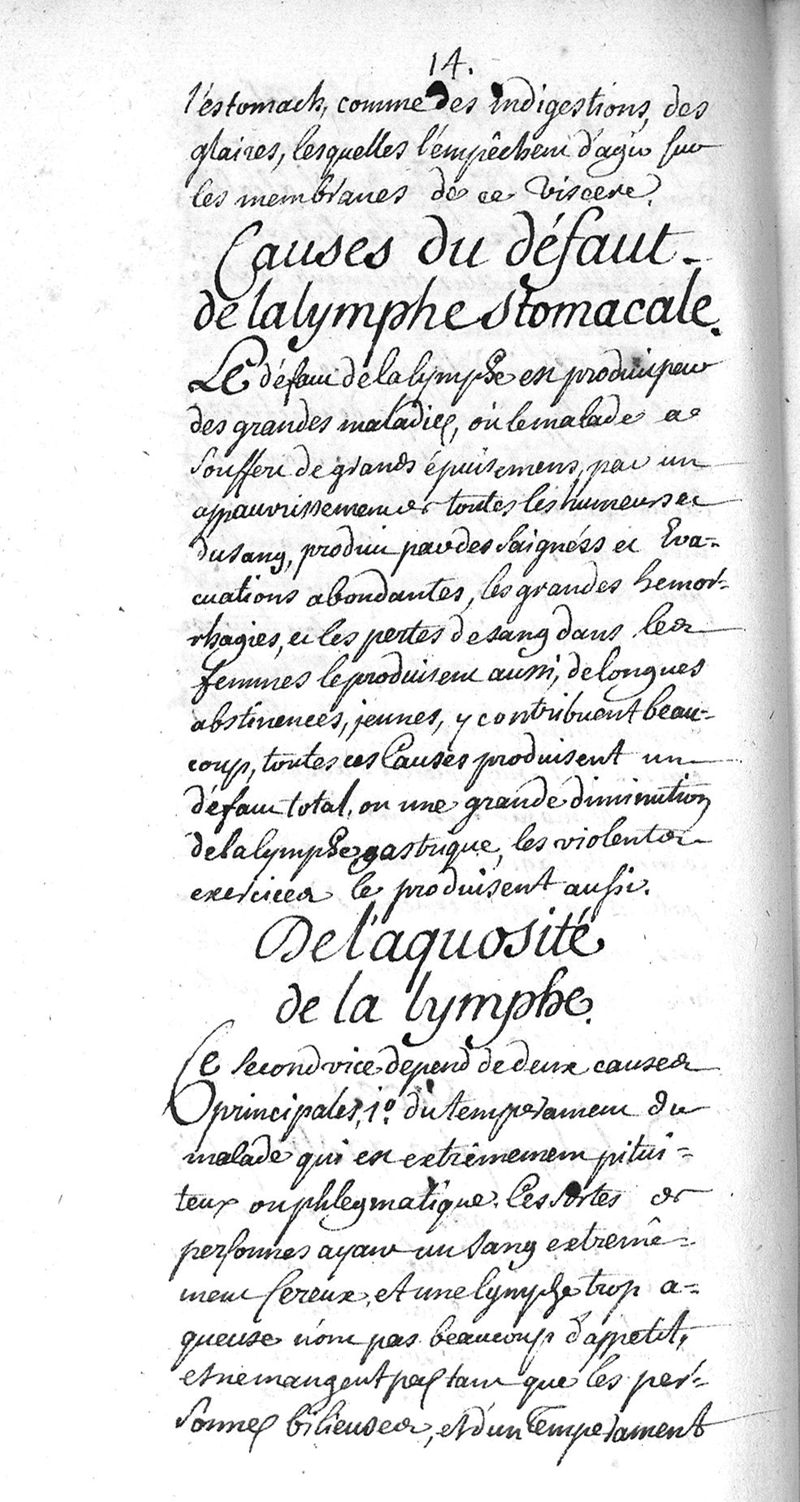 14.
l'éstomach, comme des indigestions, des
glaires, lesquelles l'empêchent d'agir sur
les membranes de ce viscere.
Causes du défaut
de la lymphe stomacale.
Le défaut de la lymphe est produit par
des grandes maladies, où le malade a
souffert de grands épuisemens, par un
appauvrissement de toutes les humeurs et
du sang, produit par des saignées et Eva-
cuations abondantes, les grandes hemor-
rhagies, et les pertes de sang dans les
femmes le produisent aussi, de longues
abstinences, jeunes, y contribuent beau-
coup, toutes ces Causes produisent un
défaut total, ou une grande diminution
de la lymphe gastrique, les violents
exercices le produisent aussi.
De l'aquosité
de la lymphe.
Ce second vice depend de deux causes
principales, 1º. du temperament du
malade qui est extrêmement pitui-
teux ou phlegmatique. Ces sortes de
personnes ayant un sang extremê-
ment sereux, et une lymphe trop a-
queuse n'ont pas beaucoup d'appetit,
et ne mangent pas tant que les per-
sonnes bilieuses, et d'un Temperament